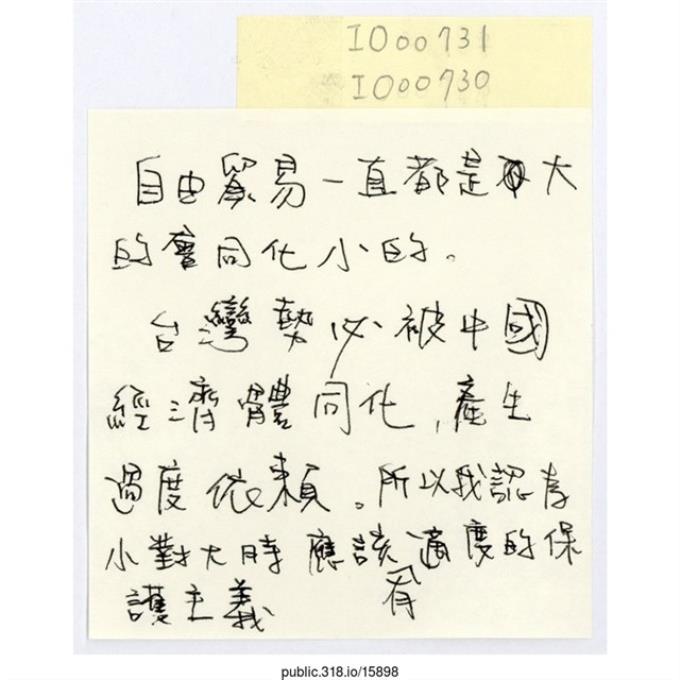 IO00731
IO00730
自由貿易一直都是大
的會同化小的。
台灣勢必被中國
經濟體同化,產生
過度依賴。所以我認為
小對大時應該有適度的保
護主義
public.318.io/15898